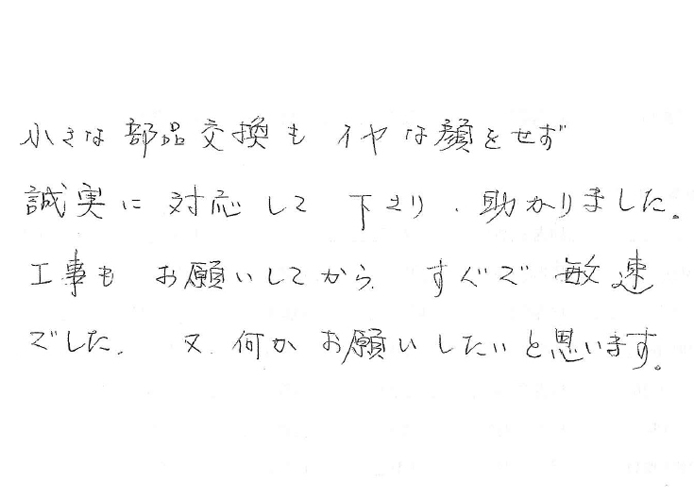 小さな部品交換も イヤな顔をせず
誠実に 対応して 下さり、助かりました。
工事も お願いしてから、すぐで 敏速
でした。 又、何か お願いしたいと思います。